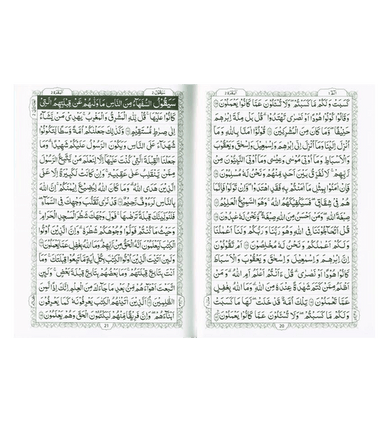 كَسَبَتْ وَلَكُمْ مَّا كَسَبْتُمْ ۚ وَلَا تُسْـَٔلُوْنَ عَمَّا كَانُوْا يَعْمَلُوْنَ
وَقَالُوْا كُوْنُوْا هُوْدًا اَوْ نَصٰرٰى تَهْتَدُوْا ؕ قُلْ بَلْ مِلَّةَ اِبْرٰهٖمَ
حَنِيْفًا ؕ وَمَا كَانَ مِنَ الْمُشْرِكِيْنَ قُوْلُوْٓا اٰمَنَّا بِاللّٰهِ وَمَآ
اُنْزِلَ اِلَيْنَا وَمَآ اُنْزِلَ اِلٰٓى اِبْرٰهٖمَ وَاِسْمٰعِيْلَ وَاِسْحٰقَ وَيَعْقُوْبَ
وَالْاَسْبَاطِ وَمَآ اُوْتِيَ مُوْسٰى وَعِيْسٰى وَمَآ اُوْتِيَ النَّبِيُّوْنَ مِنْ
رَّبِّهِمْ ۚ لَا نُفَرِّقُ بَيْنَ اَحَدٍ مِّنْهُمْ ۖ وَنَحْنُ لَهٗ مُسْلِمُوْنَ
فَاِنْ اٰمَنُوْا بِمِثْلِ مَآ اٰمَنْتُمْ بِهٖ فَقَدِ اهْتَدَوْا ۚ وَاِنْ تَوَلَّوْا فَاِنَّمَا
هُمْ فِيْ شِقَاقٍ ۚ فَسَيَكْفِيْكَهُمُ اللّٰهُ ۚ وَهُوَ السَّمِيْعُ الْعَلِيْمُ
صِبْغَةَ اللّٰهِ ۚ وَمَنْ اَحْسَنُ مِنَ اللّٰهِ صِبْغَةً ۖ وَّنَحْنُ لَهٗ عٰبِدُوْنَ
قُلْ اَتُحَآجُّوْنَنَا فِي اللّٰهِ وَهُوَ رَبُّنَا وَرَبُّكُمْ ۚ وَلَنَآ اَعْمَالُنَا
وَلَكُمْ اَعْمَالُكُمْ ۚ وَنَحْنُ لَهٗ مُخْلِصُوْنَ اَمْ تَقُوْلُوْنَ
اِنَّ اِبْرٰهٖمَ وَاِسْمٰعِيْلَ وَاِسْحٰقَ وَيَعْقُوْبَ وَالْاَسْبَاطَ
كَانُوْا هُوْدًا اَوْ نَصٰرٰى ؕ قُلْ ءَاَنْتُمْ اَعْلَمُ اَمِ اللّٰهُ ؕ وَمَنْ
اَظْلَمُ مِمَّنْ كَتَمَ شَهَادَةً عِنْدَهٗ مِنَ اللّٰهِ ؕ وَمَا اللّٰهُ بِغَافِلٍ
عَمَّا تَعْمَلُوْنَ تِلْكَ اُمَّةٌ قَدْ خَلَتْ ۚ لَهَا مَا كَسَبَتْ
وَلَكُمْ مَّا كَسَبْتُمْ ۚ وَلَا تُسْـَٔلُوْنَ عَمَّا كَانُوْا يَعْمَلُوْنَ
20
سَيَقُوْلُ السُّفَهَآءُ مِنَ النَّاسِ مَا وَلّٰىهُمْ عَنْ قِبْلَتِهِمُ الَّتِيْ
كَانُوْا عَلَيْهَا ؕ قُلْ لِّلّٰهِ الْمَشْرِقُ وَالْمَغْرِبُ ؕ يَهْدِيْ مَنْ يَّشَآءُ
اِلٰى صِرَاطٍ مُّسْتَقِيْمٍ وَكَذٰلِكَ جَعَلْنٰكُمْ اُمَّةً وَّسَطًا لِّتَكُوْنُوْا
شُهَدَآءَ عَلَى النَّاسِ وَيَكُوْنَ الرَّسُوْلُ عَلَيْكُمْ شَهِيْدًا ؕ وَمَا
جَعَلْنَا الْقِبْلَةَ الَّتِيْ كُنْتَ عَلَيْهَآ اِلَّا لِنَعْلَمَ مَنْ يَّتَّبِعُ الرَّسُوْلَ
مِمَّنْ يَّنْقَلِبُ عَلٰى عَقِبَيْهِ ؕ وَاِنْ كَانَتْ لَكَبِيْرَةً اِلَّا عَلَى
الَّذِيْنَ هَدَى اللّٰهُ ؕ وَمَا كَانَ اللّٰهُ لِيُضِيْعَ اِيْمَانَكُمْ ؕ اِنَّ اللّٰهَ
بِالنَّاسِ لَرَءُوْفٌ رَّحِيْمٌ قَدْ نَرٰى تَقَلُّبَ وَجْهِكَ فِي السَّمَآءِ ۚ
فَلَنُوَلِّيَنَّكَ قِبْلَةً تَرْضٰىهَا ۪ فَوَلِّ وَجْهَكَ شَطْرَ الْمَسْجِدِ الْحَرَامِ ؕ
وَحَيْثُ مَا كُنْتُمْ فَوَلُّوْا وُجُوْهَكُمْ شَطْرَهٗ ؕ وَاِنَّ الَّذِيْنَ اُوْتُوا
الْكِتٰبَ لَيَعْلَمُوْنَ اَنَّهُ الْحَقُّ مِنْ رَّبِّهِمْ ؕ وَمَا اللّٰهُ بِغَافِلٍ عَمَّا يَعْمَلُوْنَ
وَلَئِنْ اَتَيْتَ الَّذِيْنَ اُوْتُوا الْكِتٰبَ بِكُلِّ اٰيَةٍ مَّا تَبِعُوْا قِبْلَتَكَ ۚ
وَمَآ اَنْتَ بِتَابِعٍ قِبْلَتَهُمْ ۚ وَمَا بَعْضُهُمْ بِتَابِعٍ قِبْلَةَ بَعْضٍ ؕ وَلَئِنِ
اتَّبَعْتَ اَهْوَآءَهُمْ مِّنْۢ بَعْدِ مَا جَآءَكَ مِنَ الْعِلْمِ ۙ اِنَّكَ اِذًا لَّمِنَ
الظّٰلِمِيْنَ اَلَّذِيْنَ اٰتَيْنٰهُمُ الْكِتٰبَ يَعْرِفُوْنَهٗ كَمَا يَعْرِفُوْنَ
اَبْنَآءَهُمْ ؕ وَاِنَّ فَرِيْقًا مِّنْهُمْ لَيَكْتُمُوْنَ الْحَقَّ وَهُمْ يَعْلَمُوْنَ
21